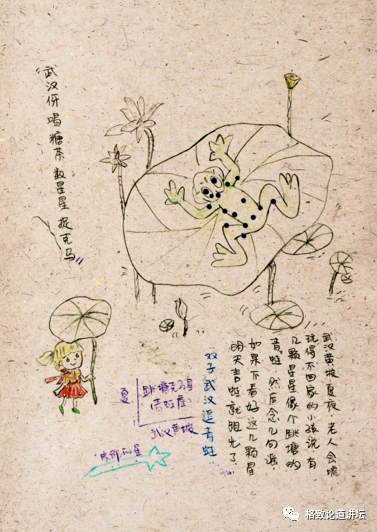 武汉伢喝糖茶 数星星捉克马
武汉黄陂夏夜,老人会唬
玩得不回家的小孩说有
几颗星星像个跳塘的
青蛙,然后念几句谣
如果不看好这几颗星
明天青蛙就跑光了
双子武汉追青蛙
夏
跳塘克马星
(青蛙座)
武汉黄陂
格致论道讲坛